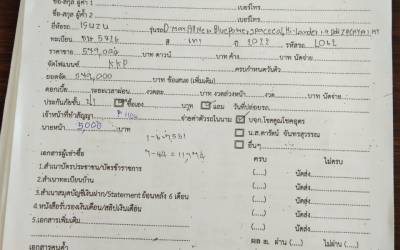 ชื่อ-สกุล ผู้ค้ำ 1 เบอร์โทร
ชื่อ-สกุล ผู้ค้ำ 2 เบอร์โทร
ยี่ห้อรถ ISUZU รุ่นรถ
ทะเบียน 5716 สี เทา ปี รหัสรถ
ราคาขาย 549,000 บาท ดาวน์ บาท ค้าง บาท นัดจ่าย
จัดไฟแนนซ์ KKP ครบกำหนดวันที่
ยอดจัด 549,000 บาท ข้อเสนอ (เพิ่มเติม)
ดอกเบี้ย ระยะเวลาผ่อน งวดละ บาท งวดล่วงหน้า งวด บาท นัดจ่าย
ประกันภัยชั้น ซื้อเอง บาท แถม วันที่ปล่อยรถ
เจ้าหน้าที่ทำสัญญา จ่ายค่าตัวรถในนาม บจก.โชคคูณโชคคูณ
นายหน้า 5000 บาท น.ส.ดารัตน์ จันทรสุวรรณ
อื่นๆ
เอกสารผู้เช่าซื้อ ครบ ไม่ครบ
1.สำเนาบัตรประชาชน/บัตรข้าราชการ (....) นัดส่ง (....)
2.สำเนาทะเบียนบ้าน (....) นัดส่ง (....)
3.สำเนาสมุดบัญชีเงินฝาก/Statement ย้อนหลัง 6 เดือน (....) นัดส่ง (....)
4.หนังสือรับรองเงินเดือน/สลิปเงินเดือน (....) นัดส่ง (....)
5.เอกสารเพิ่มเติม (....) นัดส่ง (....)
ผล ส. ผ่าน (....) ไม่ผ่าน (....)
เอกสารคนค้ำ